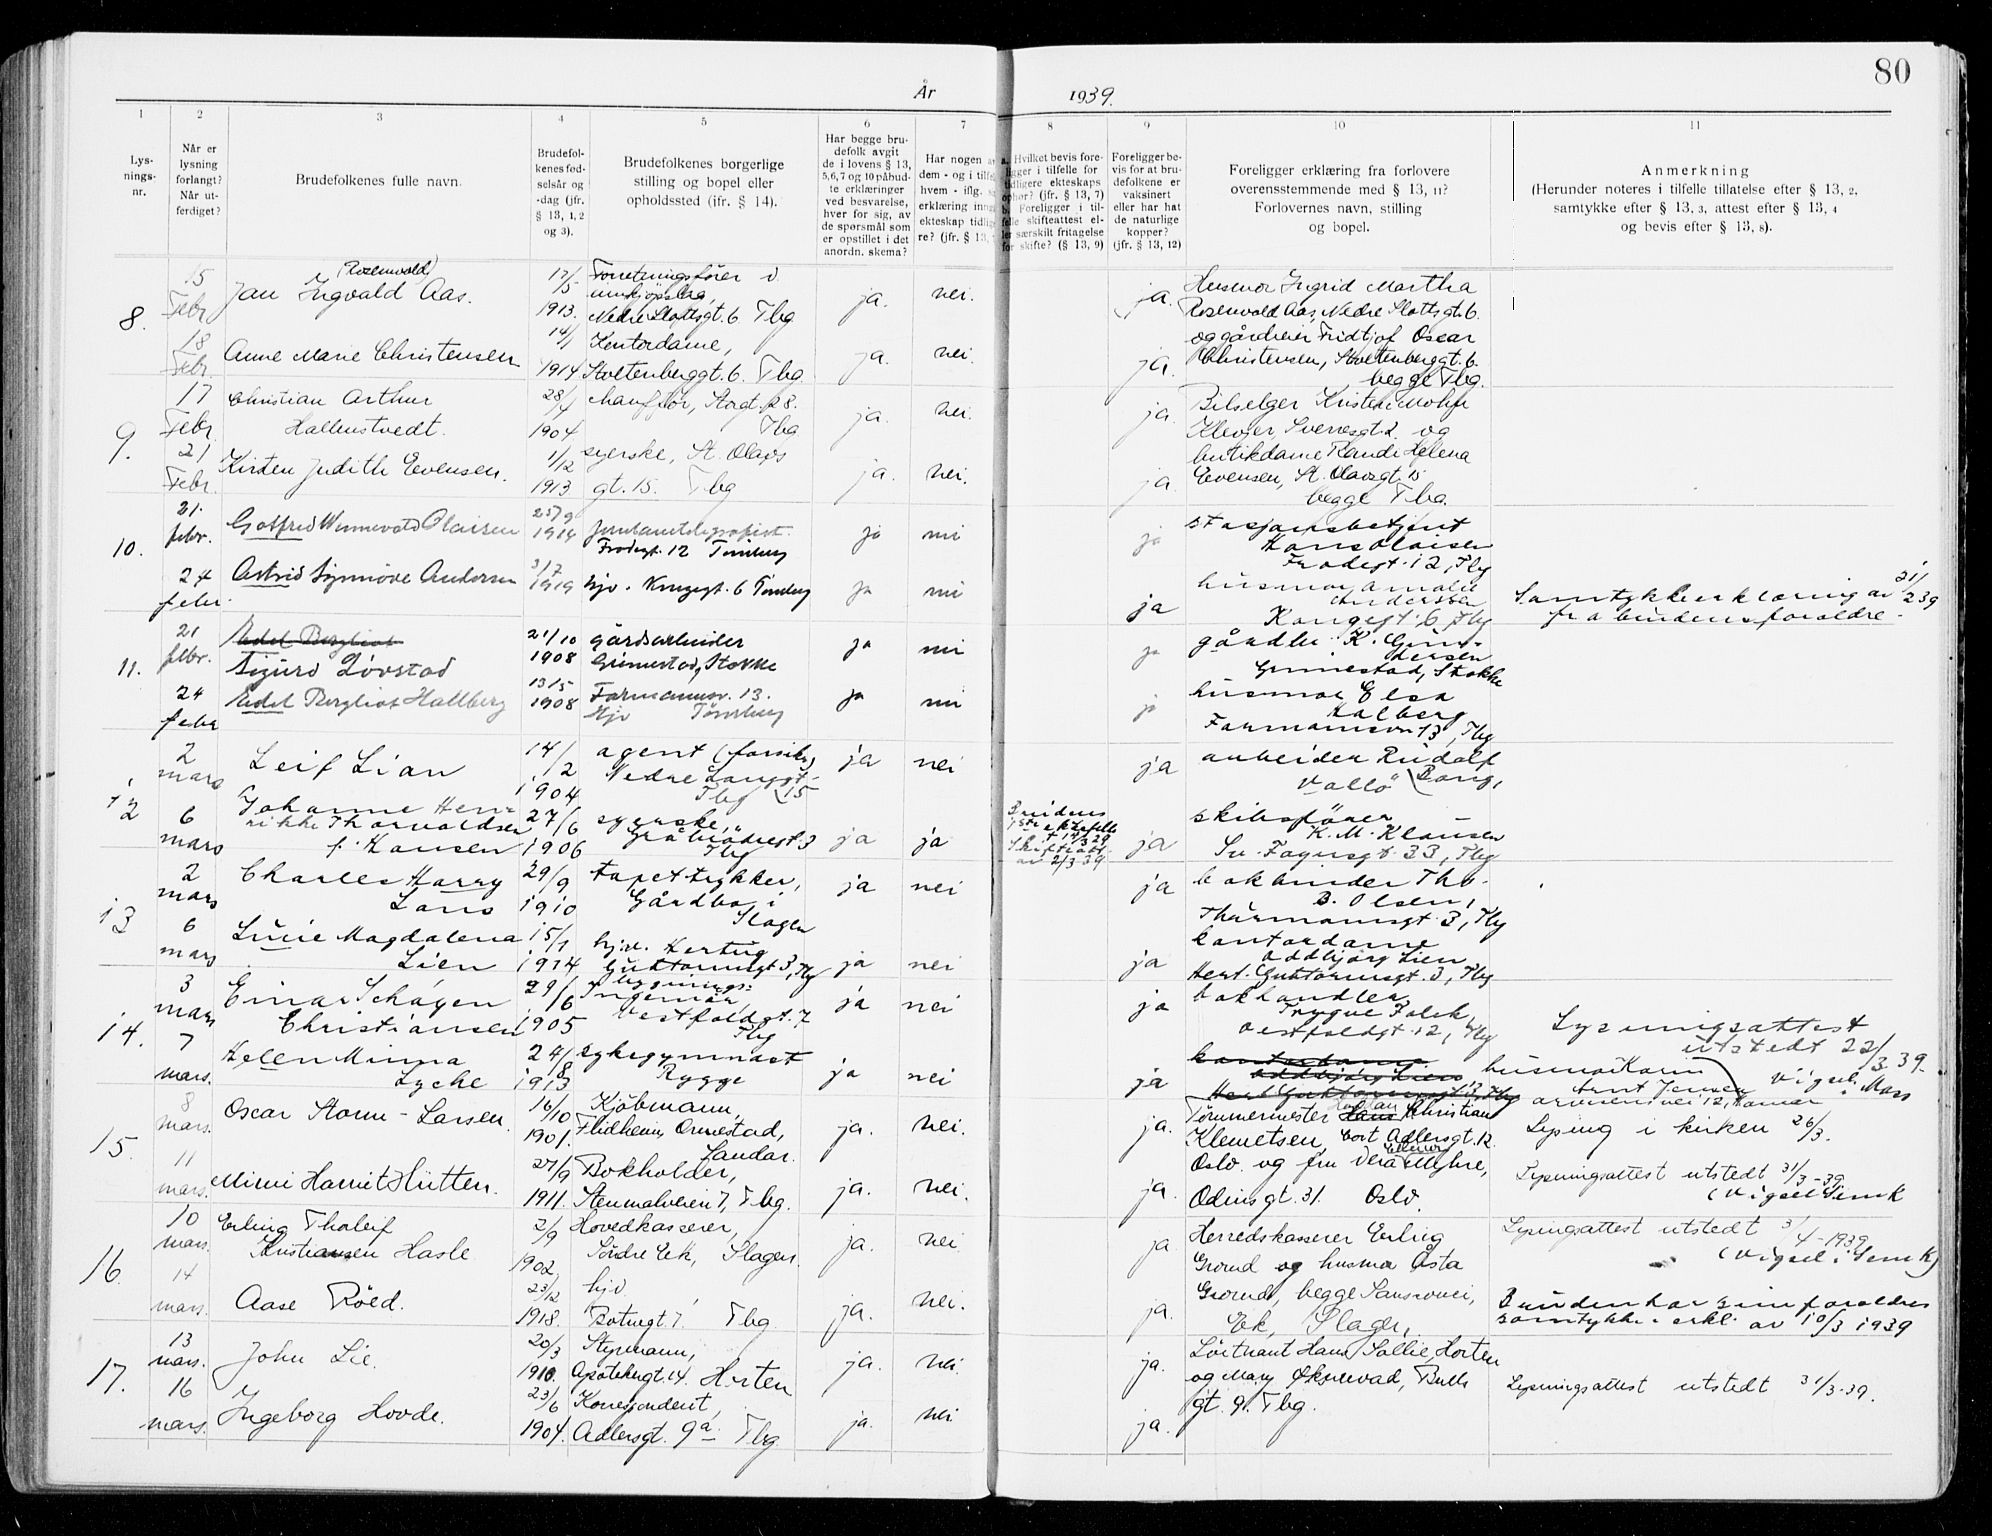 80
År 1939.
1 2 3 4 5 6 7 8 9 10 11
Lys-
nings-
nr.
Når er
lysning
forlangt?
Når ut-
ferdiget?
Brudefolkenes fulle navn.
Brudefol-
kenes fød-
selsår og
-dag (jfr.
§ 13, 1, 2
og 3).
Brudefolkenes borgerlige
stilling og bopel eller
opholdssted (jfr. § 14).
Har begge bru-
defolk avgit
de i lovens § 13,
5,6,7 og 10 påbud-
te erklæringer
ved besvarelse,
hver for sig, av
de spørsmål som
er opstillet i det
anordn. skema?
Har nogen a
dem - og i tilfe
hvem - iflg.
erklæring inng
ekteskap tidlig
re? (jfr. § 13,
a. Hvilket bevis fore-
ligger i tilfelle for
tidligere ekteskaps
ophør? (jfr. § 13, 7)
b. Foreligger i til-
felle skifteattest el-
ler særskilt fritagelse
for skifte? (§ 13, 9)
Foreligger be-
vis for at bru-
defolkene er
vaksinert
eller har hat
de naturlige
kopper?
(jfr. § 13, 12)
Foreligger erklæring fra forlovere
overensstemmende med § 13, 11?
Forlovernes navn, stilling
og bopel.
Anmerkning
(Herunder noteres i tilfelle tillatelse efter § 13, 2.
samtykke efter § 13, 3, attest efter § 13, 4
og bevis efter § 13, 8).
8.
15
Febr
(Rosenvold)
Jan Ingvald Aas.
17/5
1913.
Forretningsfører i
innkjøpslag,
Nedre Slottsgt. 6 Tbg
ja. nei. ja.
Husmor Ingrid Martha
Rosenvold Aas, Nedre Slottsgt. 6.
og gårdeier Fridtjof Oscar
Christensen, Stoltenberggt. 6.
begge Tbg.
18
Febr.
Anne Marie Christensen
14/1
1914
Kontordame,
Stoltenberggt. 6. Tbg
ja. nei. ja.
9.
17
Febr
Christian Arthur
Hallenstvedt.
28/4
1904
Chauffør, Storgt. 28.
Tbg
ja. nei. ja.
Bilselger Kristen Mohn
Klever Sverresgt. 2. og
butikdame Randi Helena
Evensen, St. Olavsgt. 15
begge Tbg.
21
Febr.
Kirsten Judith Evensen.
1/12
1913
syerske, St. Olavs
gt. 15. Tbg
ja. nei. ja.
10.
21.
febr.
Gotfred Wennevold Olaisen
25/9
1914
Frodegt. 12 Tønsberg
ja nei ja
stasjonsbetjent
Hans Olaisen
Frodegt. 12, Tbg
24
febr.
Astrid Synnøve Andersen
3/7
1919
hjv. Kongegt. 6 Tønsberg
ja nei ja
husmor Amalie
Andersen
Kongegt. 6, Tbg
Samtykkeerklæring av 21/2 39
fra brudens foreldre.
11.
21
febr.
Edel Bergliot
Sigurd Løvstad
21/10
1908
gårdsarbeider
Grimestad, Stokke
ja nei ja
gårdbr. K. Gun-
dersen
Grimestad, Stokke
24
febr
Edel Bergliot Hallberg
13/5
1908
Farmannsv. 13.
Hjv Tønsberg
ja nei ja
husmor Elsa
Halberg
Farmannsv. 13, Tbg
12
2
mars
Leif Lian
14/12
1904
agent (forsikr)
Nedre Langgt.
Tbg 15
ja nei ja
arbeider Rudolf
Bang,
Vallö
6
mars
Johanne Hen-
rikke Thorvaldsen
f. Hansen
27/6
1906
syerske,
Gråbrödregt. 3
Tbg
ja ja
Brudens
1ste ektefelle
† 14/3 29
Skifteatt.
av 2/3 39
ja
skibsfører
K. M. Klausen
Sv. Foynsgt. 33, Tbg
13
2
mars
Charles Harry
Lans
29/9
1910
tapettrykker,
Gårdbo i
Slagen
ja nei ja
bokbinder Thv.
B. Olsen,
Thürmannsgt. 3, Tbg
6
mars
Lucie Magdalena
Lien
15/1
1914
hjv. Hertug
Guttormsgt 3, Tbg
ja nei ja
kontordame
Oddbjørg Lien
Hert. Guttormsgt. 3, Tbg
14.
3
mars
Einar Schøyen
Christiansen
29/6
1905
bygnings-
ingeniør
Vestfoldgt. 7
Tbg
ja nei ja
bokhandler
Trygve Falck,
Vestfoldgt. 12, Tbg
Lysningsattest
utstedt 22/3 39.
7
mars.
Helen Minna
Lyche
24/8
1913
sykegymnast
Rygge
ja nei ja
kontordame
Oddbjørg Lien
Hert. Guttormsgt. 3, Tbg
husmor Karin
Vigsel: Moss
15.
8
mars.
Oscar Storm-Larsen.
16/10
1901.
Kjöbmann,
Fridheim, Ormestad,
Sandar.
ja. nei. ja.
Tømmermester Hans Christian
Klemetsen, Cort Adlersgt. 12.
Oslo og fru Vera Myhre,
Odinsgt. 31. Oslo.
Lysing i kirken 26/3.
11
mars.
Mimi Harriet Hütten.
27/9
1911.
Bokholder,
Stenmalveien 7, Tbg.
ja. nei. ja.
Lysningsattest utstedt 31/3-39
(Vigsel Semk
16.
10
mars.
Erling Tholeif
Kristiansen Hasle
2/9
1902.
Hovedkasserer,
Söndre Eek, Slagen.
ja. nei. ja
Herredskasserer Erling
Grorud og husmor Åsta
Grorud, begge Sansrovei,
Ek, Slagen,
Lysingsattest utstedt 3/4-1939
(Vigsel: Semk)
14
mars.
Aase Röed.
23/12
1918.
hjv.
Botnegt. 7, Tbg.
ja. nei. ja.
Bruden har sine foreldres
samtykke-erkl. av 10/3 1939
17.
13
mars.
John Lie.
20/3
1910.
Styrmann,
Apotekergt. 14. Horten
ja. nei. ja.
Löitnant Hans Sollie, Horten
og Mary Øksnevad, Bulls
gt. 9. Tbg.
Lysningsattest utstedt 31/3-39.
16
mars.
Ingeborg Hovde.
23/6
1904.
Korrespondent,
Adlersgt. 9a Tbg
ja. nei ja.